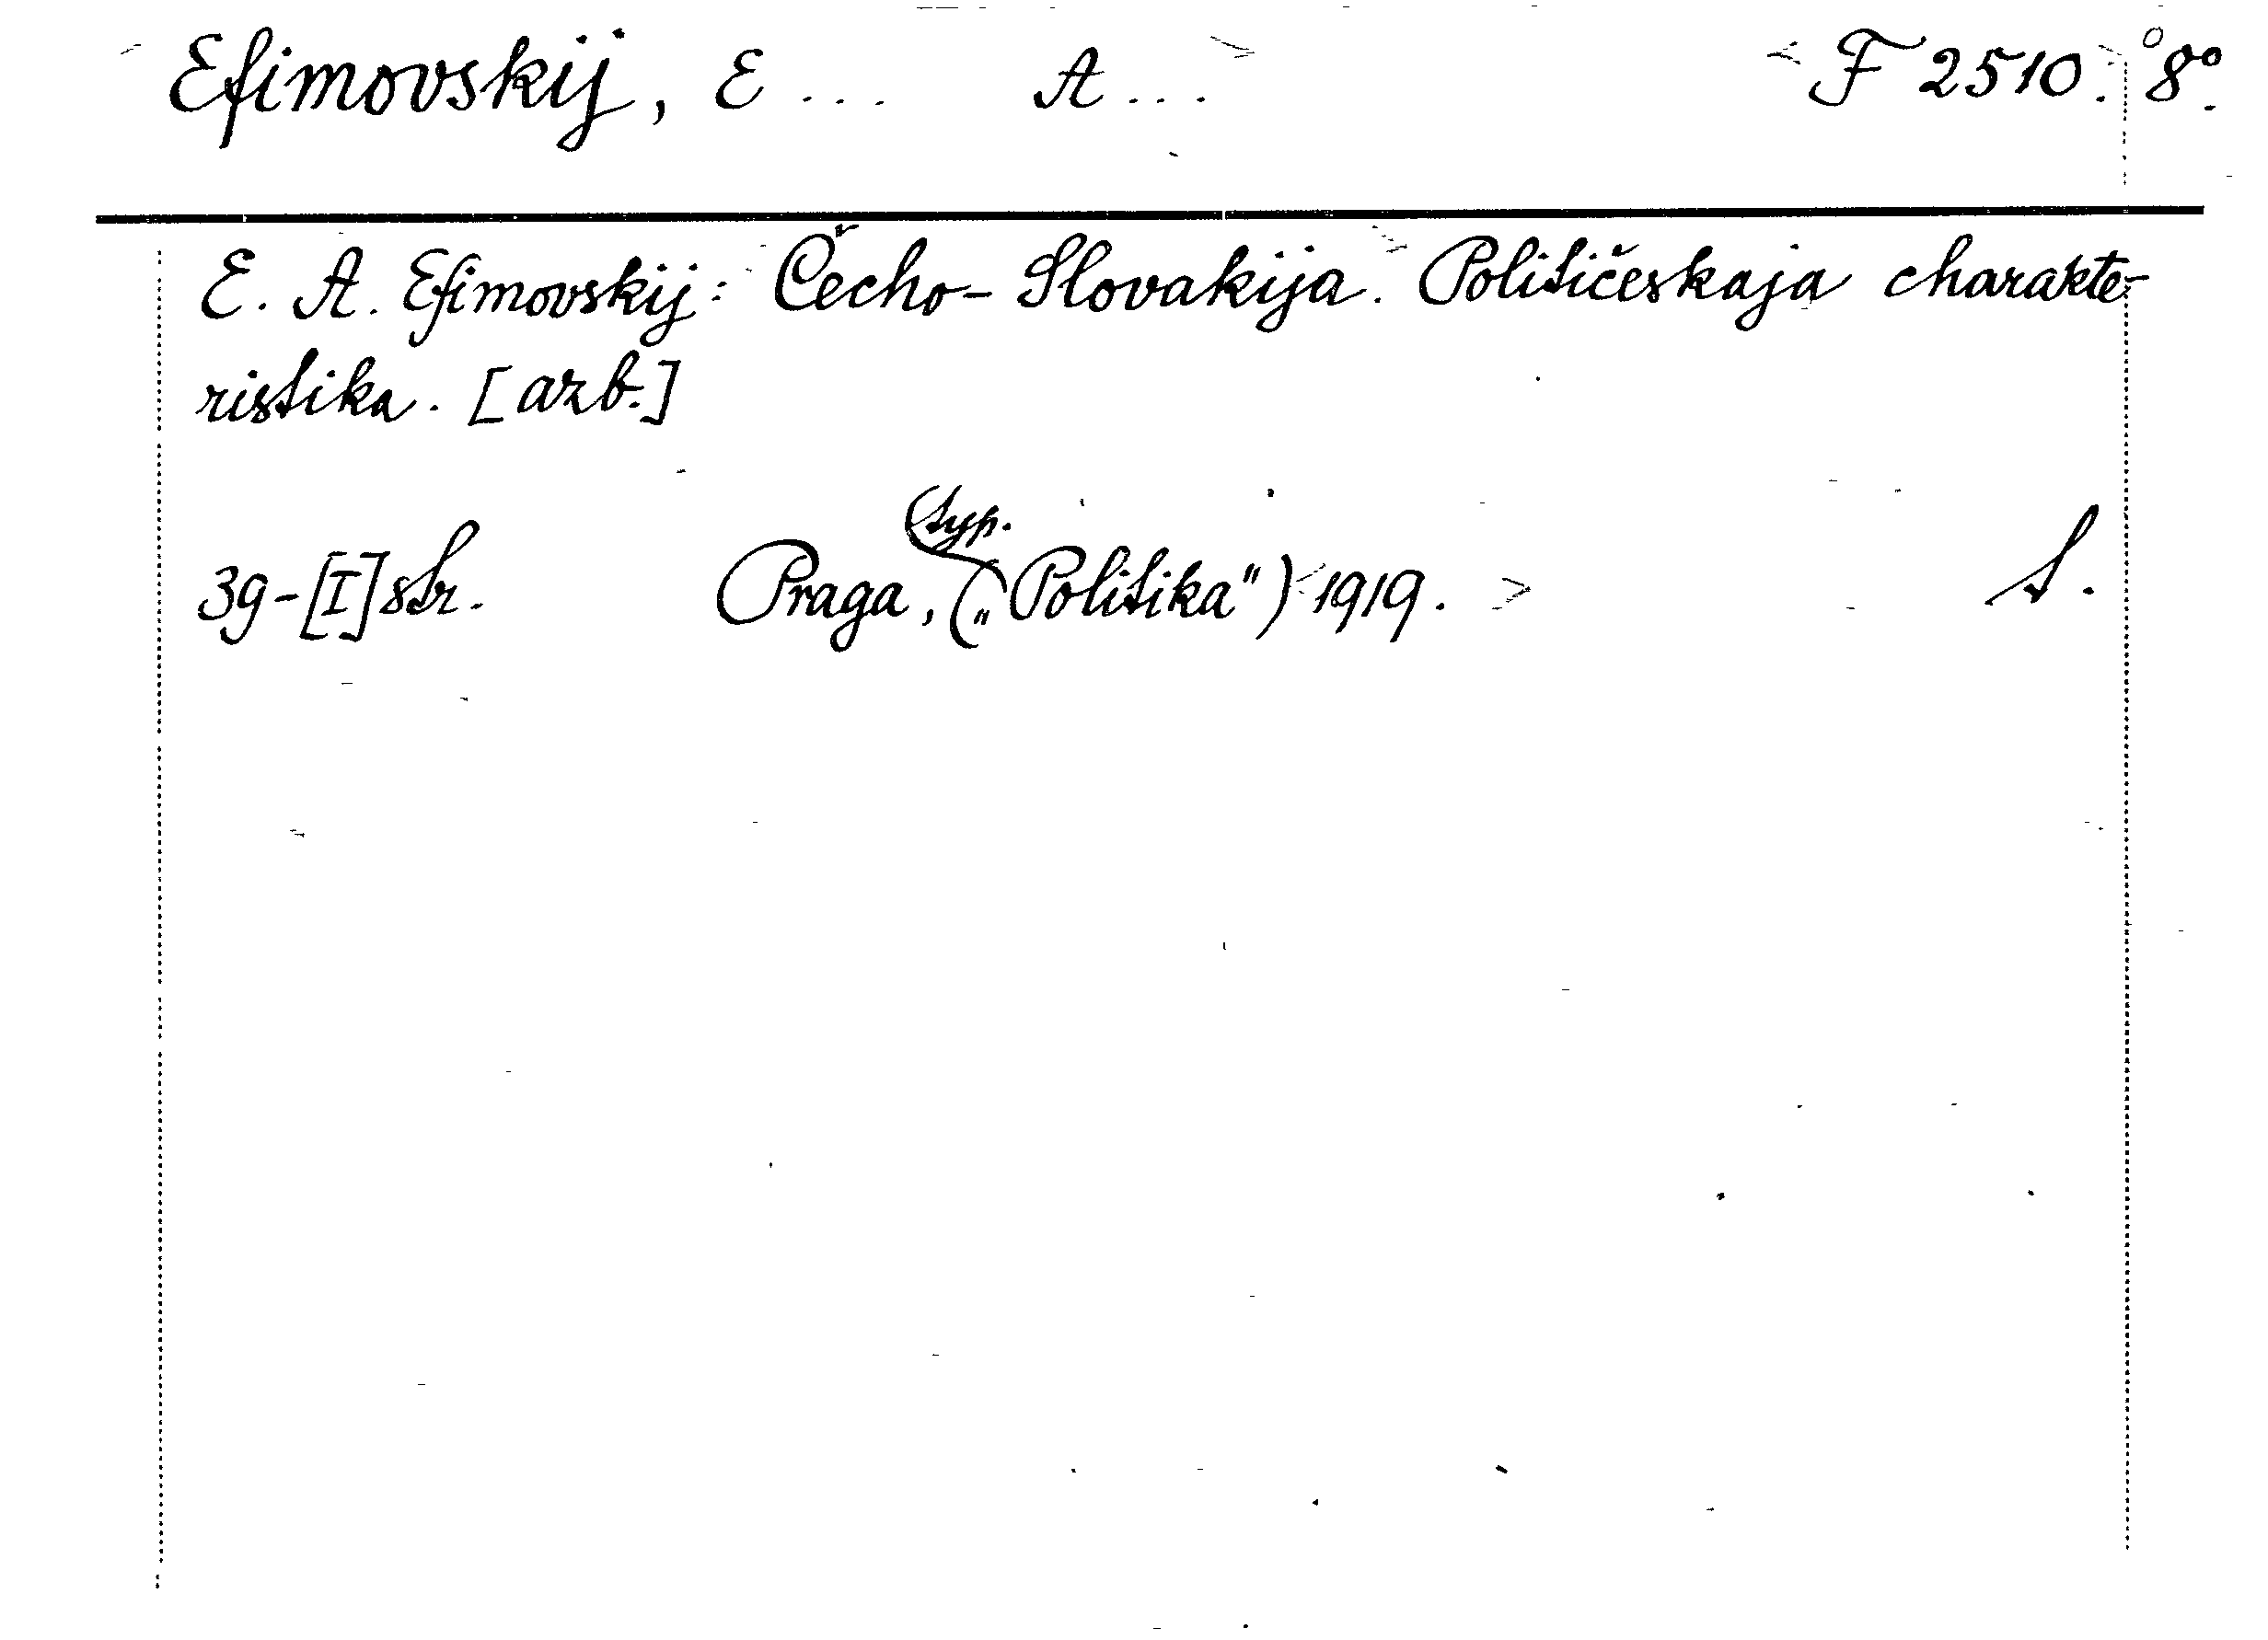 Efimovskij, E... A... F 2510. 8°.
E. A. Efimovskij: Čecho-Slovakija. Političeskaja charakte-
ristika. [azb.]
typ.
39-[I] str. Praga, („Politika") 1919. S.